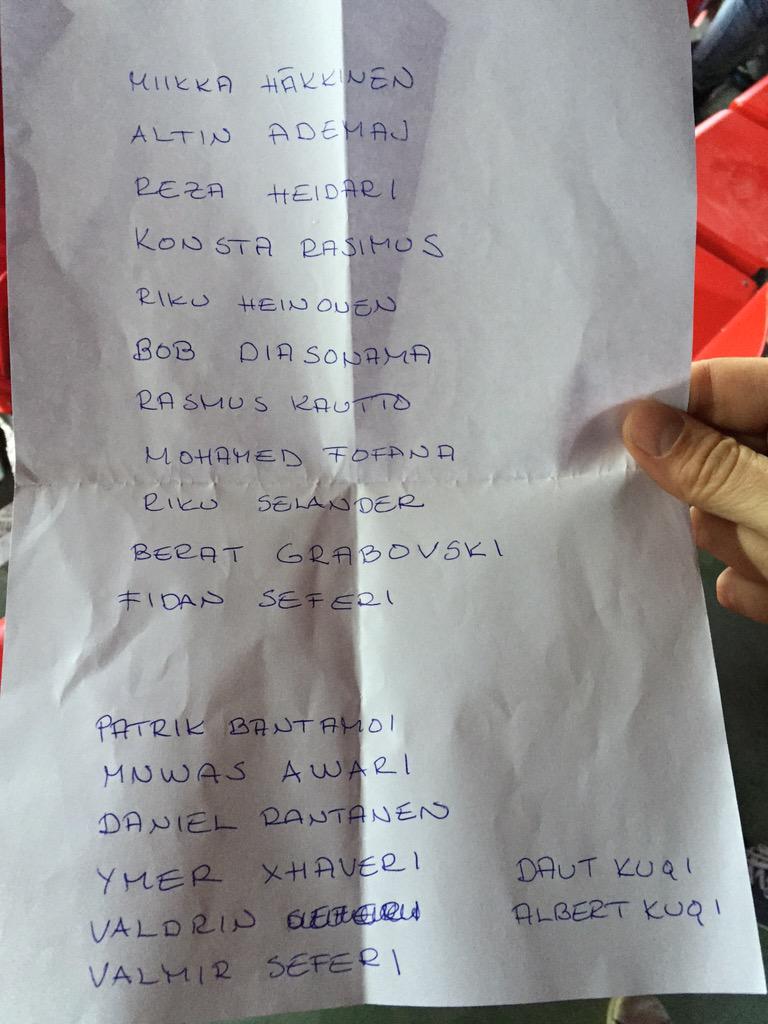 MIIKKA HÄKKINEN
ALTIN ADEMAJ
REZA HEIDARI
KONSTA RASIMUS
RIKU HEINONEN
BOB DIASONAMA
RASMUS KAUTTO
MOHAMED FOFANA
RIKU SELANDER
BERAT GRABOVSKI
FIDAN SEFERI
PATRIK BANTAMOI
MNWAS AWARI
DANIEL RANTANEN
YMER XHAVERI
VALDRIN
VALMIR SEFERI
DAUT KUQI
ALBERT KUQI